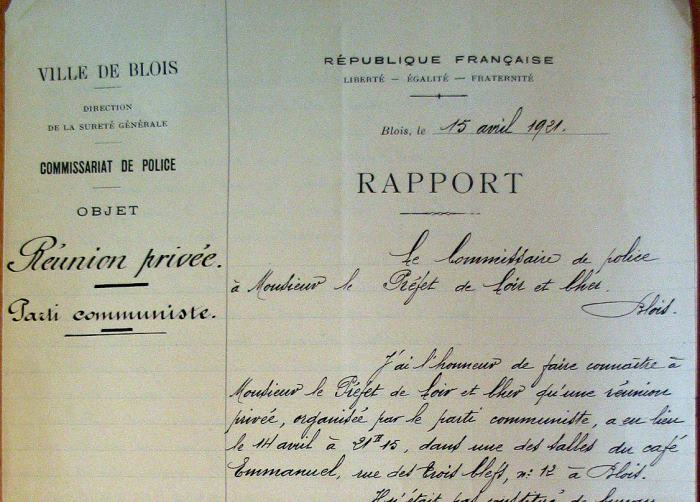 VILLE DE BLOIS
DIRECTION
DE LA SURETÉ GÉNÉRALE
COMMISSARIAT DE POLICE
OBJET
Réunion privée.
Parti communiste.
RÉPUBLIQUE FRANÇAISE
LIBERTÉ — ÉGALITÉ — FRATERNITÉ
Blois, le 15 avril 1921.
RAPPORT
Le Commissaire de police
à Monsieur le Préfet de Loir et Cher.
Blois.
J'ai l'honneur de faire connaître à
Monsieur le Préfet de Loir et Cher qu'une réunion
privée, organisée par le parti communiste, a eu lieu
le 14 avril à 21 H 15, dans une des salles du café
Emmanuel, rue des Trois Clefs, n: 12 à Blois.
Il n'était pas